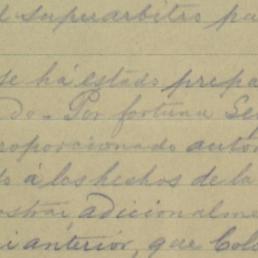 l superarbitro pa
se há estado prepa
do. Por fortuna Se
roporcionado autó
s á los hechos de la
ostrar, adicionalme
i anterior, que Col